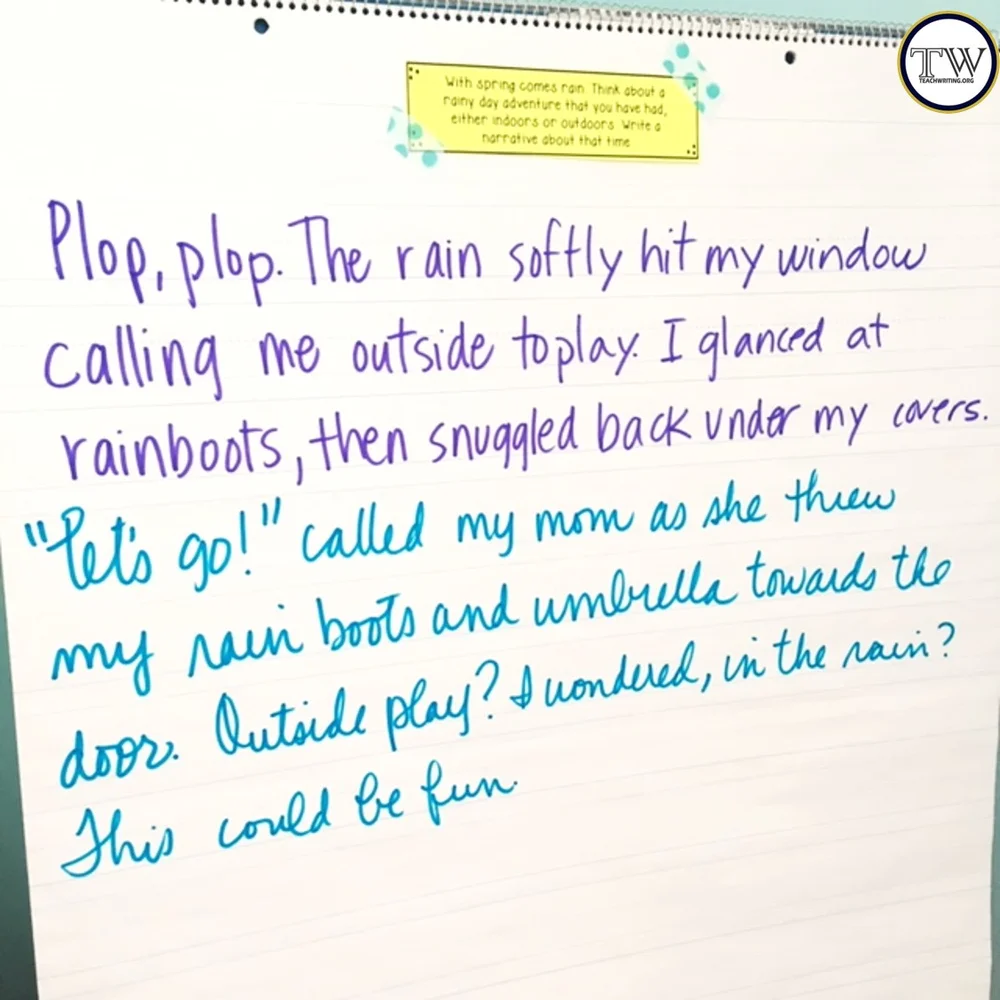 TW
TEACHWRITING.ORG
With spring comes rain. Think about a
rainy day adventure that you have had,
either indoors or outdoors. Write a
narrative about that time
Plop, plop. The rain softly hit my window
calling me outside to play. I glanced at
rainboots, then snuggled back under my covers.
"Let's go!" called my mom as she threw
my rain boots and umbrella towards the
door. Outside play? I wondered, in the rain?
This could be fun.